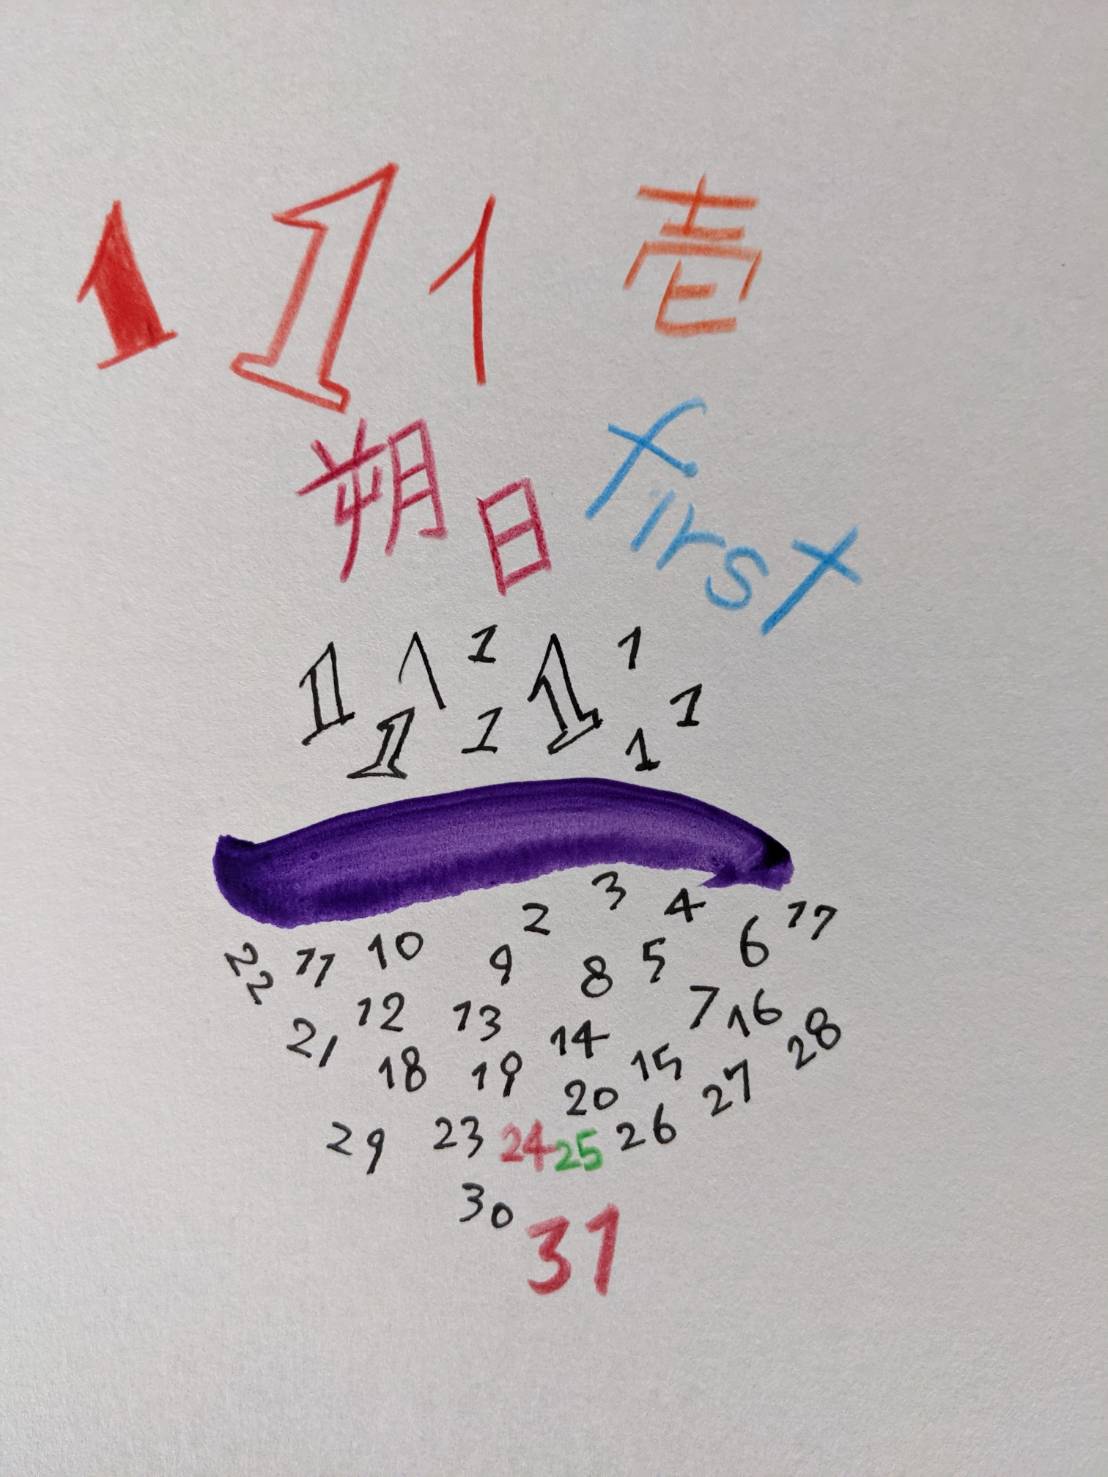 1 1 1 壱
朔日 first
1 1 1 1 1
1 1 1 1
2 3 4
22 11 10 9 8 5 6 17
21 12 13 14 7 16 28
18 19 20 15 27
29 23 24 25 26
30 31